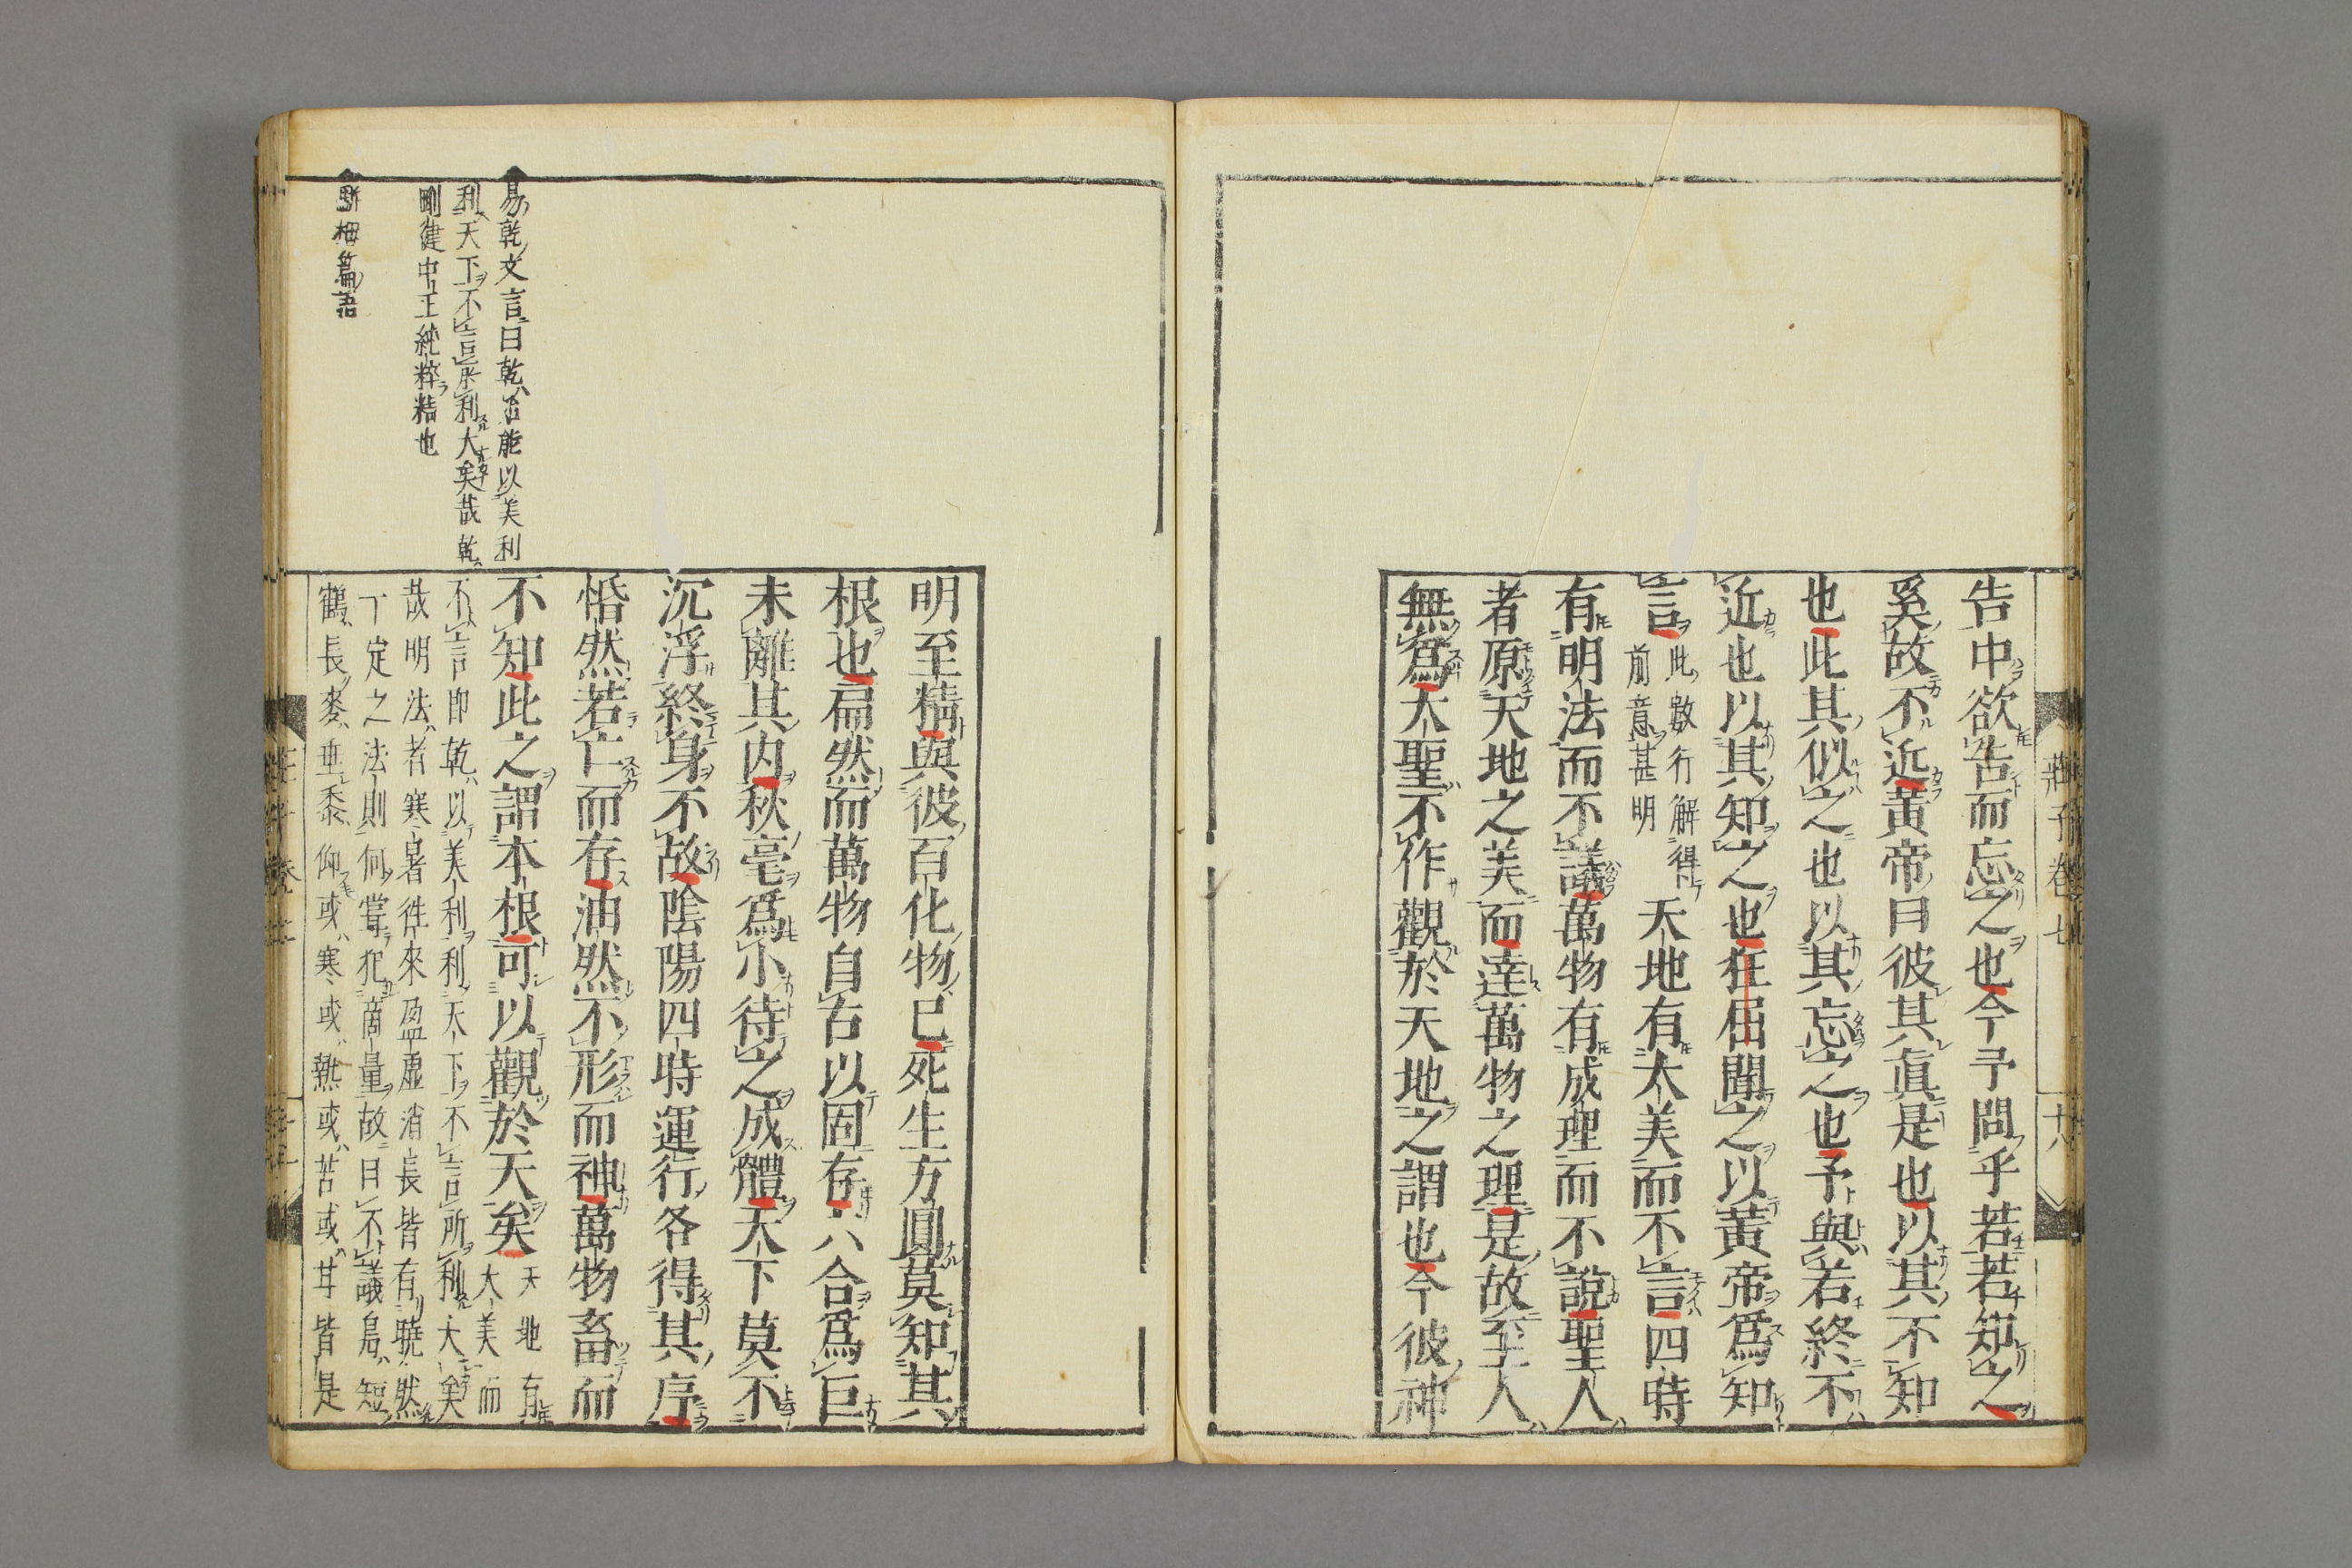 莊子卷七
十八
告中欲告而忘之也今予問乎若若知之
奚故不近黃帝曰彼其眞是也以其不知
也此其似之也以其忘之也予與若終不
近也以其知之也狂屈聞之以黃帝爲知
言
此數行解得
前意甚明
天地有大美而不言四時
有明法而不議萬物有成理而不說聖人
者原天地之美而達萬物之理是故至人
無爲大聖不作觀於天地之謂也今彼神
明至精與彼百化物已死生方圓莫知其
根也扁然而萬物自古以固存六合爲巨
未離其內秋毫爲小待之成體天下莫不
沉浮終身不故陰陽四時運行各得其序
惛然若亡而存油然不形而神萬物畜而
不知此之謂本根可以觀於天矣
天地有
大美而
不言即乾以美利利天下不言所利大矣
哉明法者寒暑往來盈虛消長皆有曉然
一定之法則何嘗犯商量故曰不議鳧短
鶴長麥垂黍仰或寒或熱或苦或甘皆是
易乾文言曰乾始能以美利
利天下不言所利大矣哉乾
剛健中正純粹精也
駢拇篇語